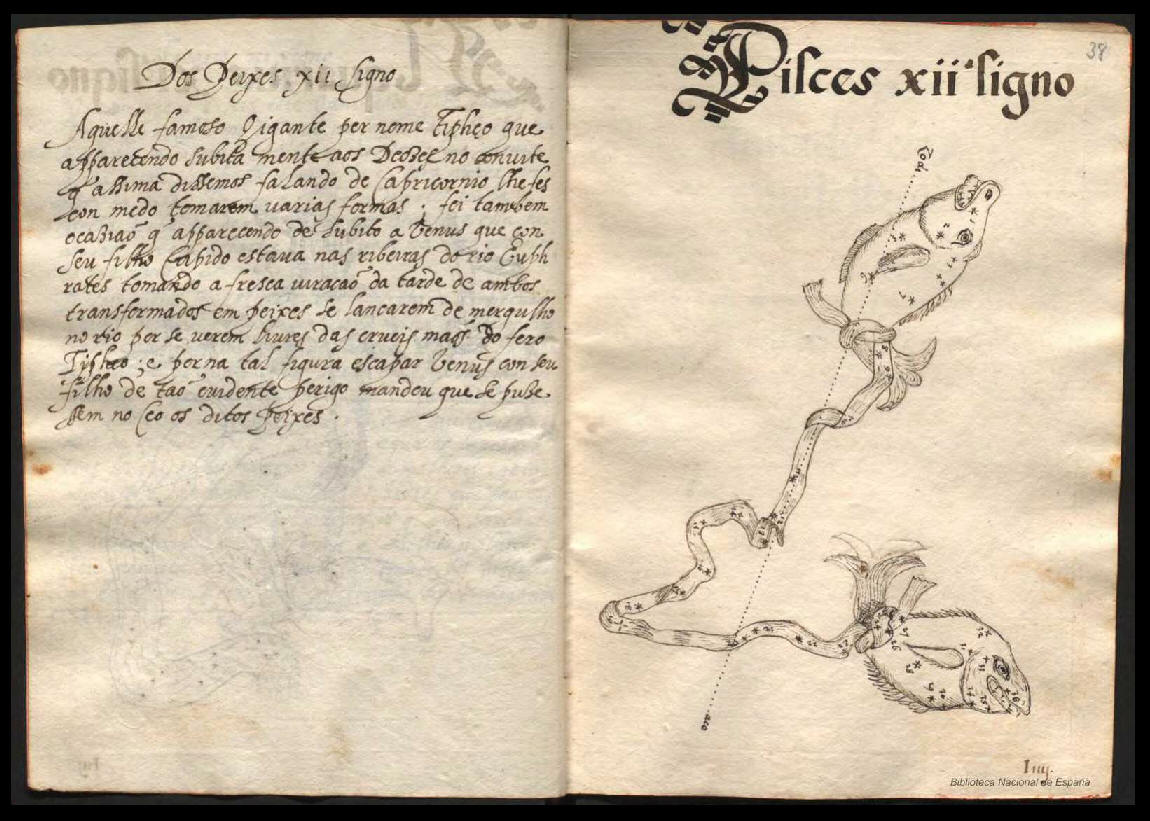 Dos Peixes xii signo
Aquelle famoso Gigante per nome Tipheo que
apparecendo subita mente aos Deoses no convite
q̃ assima dissemos falando de Capricornio lhe fes
con medo tomarem varias formas; foi tambem
ocaziaõ q̃ apparecendo de subito a Venus que con
seu filho Cupido estava nas ribeiras do rio Euph
rates tomando a fresca viraçaõ da tarde de ambos
transformados em peixes se lancarem de mergulho
no rio por se verem livres das crueis maõs do fero
Tipheo; e por na tal figura escapar Venus con seu
filho de taõ evidente perigo mandou que se puse
ssem no Ceo os ditos peixes.
38
Pisces xii signo
Iiij.
Biblioteca Nacional de España